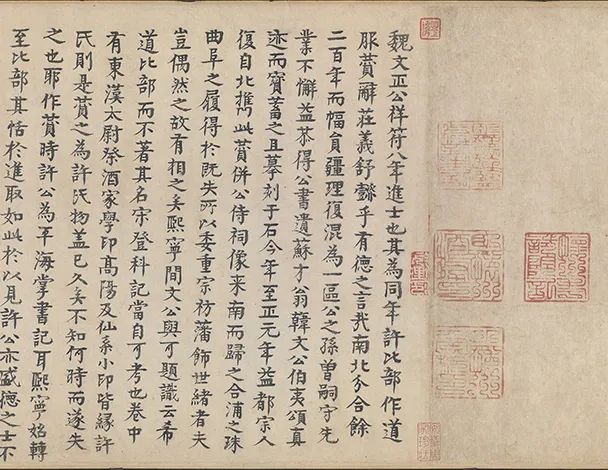 魏文正公祥符八年進士也其為同年許比部作道
服贊辭莊義舒乎有德之言哉南北分合餘
二百年而幅員疆理復混為一區公之孫曽嗣守先
業不懈益恭得公書遺蘇才翁韓文公伯夷頌真
迹而寶蓄之且摹刻于石今年至正元年益都宗人
復自北攜此贊併公侍祠像来南而歸之合浦之珠
曲阜之履得於既失所以委重宗祊藩飾世緒者夫
豈偶然之故有相之矣熙寧間文公與可題識云希
道比部而不著其名宋登科記當自可考也卷中
有東漢太尉祭酒家學印高陽及仙系小印皆緣許
氏則是贊之為許氏物蓋已久矣不知何時而遂失
之也耶作贊時許公為平海掌書記耳熙寧始轉
至比部其恬於進取如此於以見許公亦盛德之士不